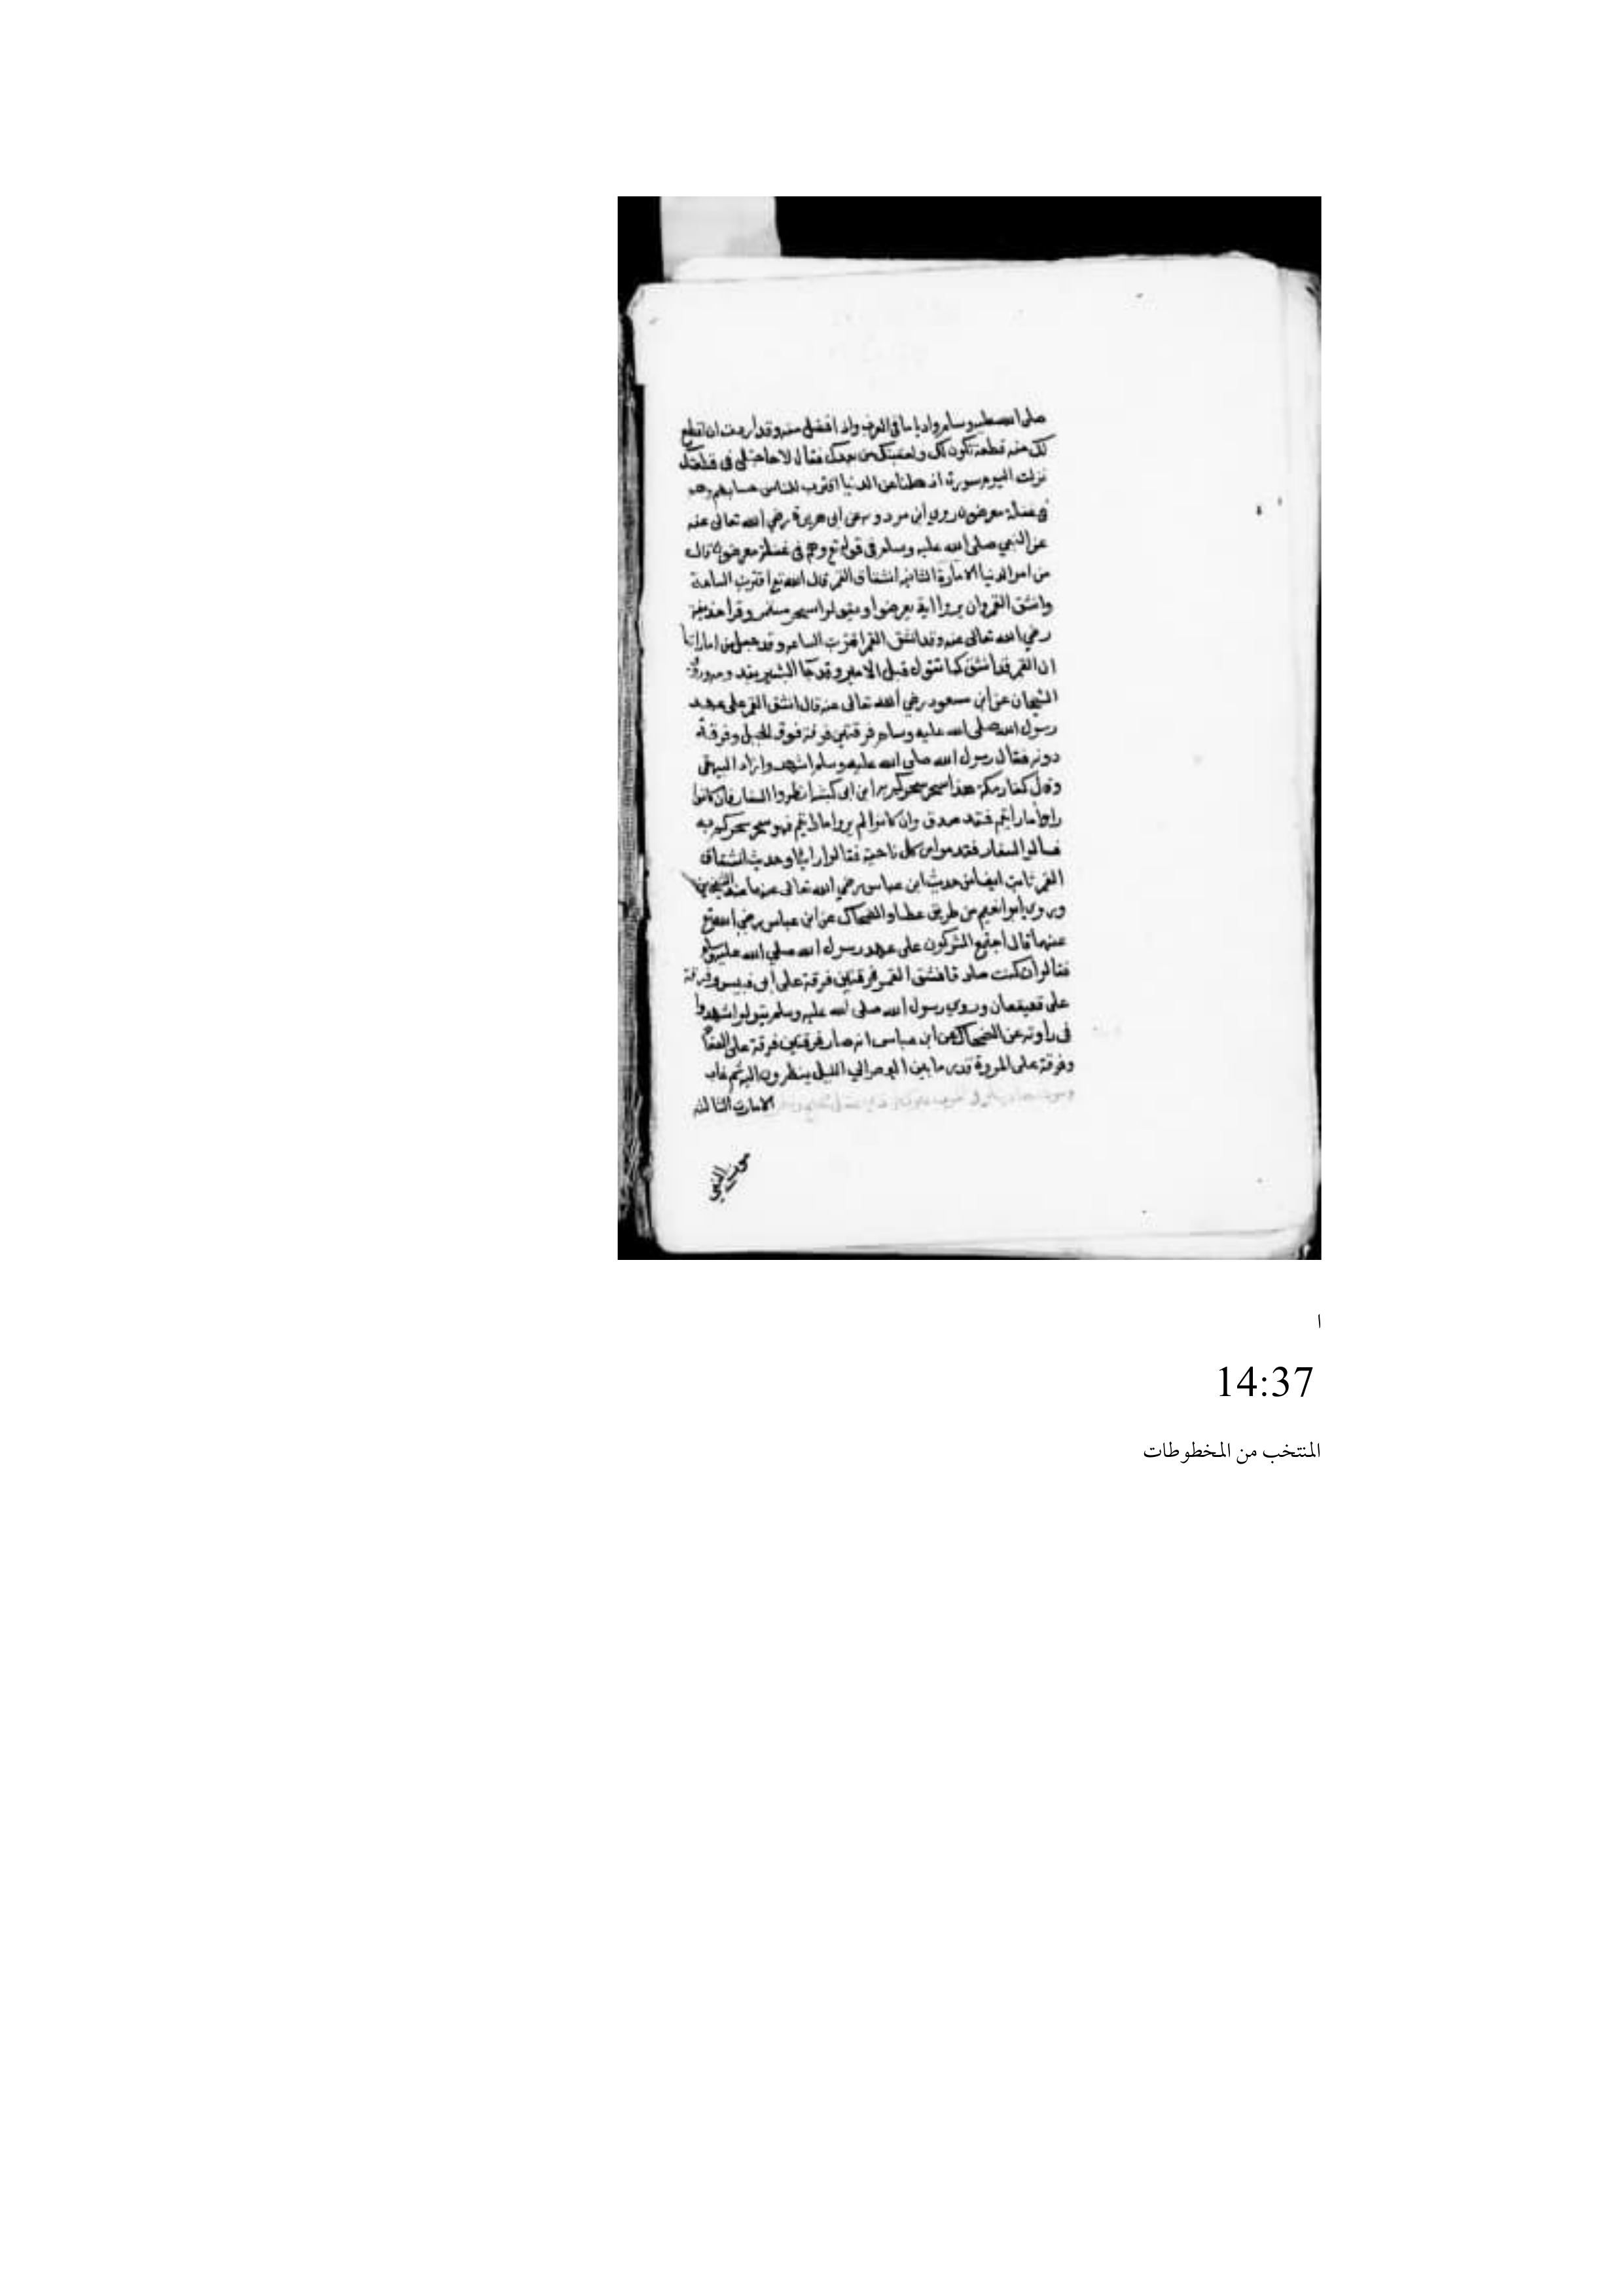 صلى الله عليه وسلم واديا ما في العرب واد افضل منه وقد اردت ان اقطع
لك منه قطعة تكون لك ولعقبك من بعدك فقال لا حاجة لي في قطعتك
نزلت اليوم سورة اذهلتنا عن الدنيا اقترب للناس حسابهم وهم
في غفلة معرضون روي ابن مردويه عن ابي هريرة رضي الله تعالى عنه
عن النبي صلى الله عليه وسلم في قوله تع وهم في غفلة معرضون قال
من امر الدنيا الامارة الثانية انشقاق القمر قال الله تع اقتربت الساعة
وانشق القمر وان يروا اية يعرضوا ويقولوا سحر مستمر وقرا حذيفة
رضي الله تعالى عنه وقد انشق القمر اقتربت الساعة وقد حصل من اماراتها
ان القمر قد انشق كما تقول قبل الامير وقد جا البشير بقدومه وروي
الشيخان عن ابن مسعود رضي الله تعالى عنه قال انشق القمر على عهد
رسول الله صلى الله عليه وسلم فرقتين فرقة فوق الجبل وفرقة
دونه فقال رسول الله صلى الله عليه وسلم اشهدوا زاد البيهقي
وقال كفار مكة هذا سحر سحركم به ابن ابي كبشة انظروا السفار فان كانوا
راوا ما رايتم فقد صدق وان كانوا لم يروا ما رايتم فهو سحر سحركم به
فسالوا السفار فقدموا من كل ناحية فقالوا راينا وحديث انشقاق
القمر ثابت ايضا من حديث ابن عباس رضي الله تعالى عنهما عند الشيخين
وروي ابو نعيم من طريق عطا والضحاك عن ابن عباس رضي الله تع
عنهما قال اجتمع المشركون على عهد رسول الله صلي الله عليه وسلم
فقالوا ان كنت صادقا فشق القمر فرقتين فرقة على ابي قبيس وفرقة
على قعيقعان وروي رسول الله صلى الله عليه وسلم يقول اشهدوا
في رواته عن الضحاك عن ابن عباس انه صار فرقتين فرقة على الصفا
وفرقة على المروة قدر ما بين العصر الي الليل ينظرون اليه ثم غاب
الامارة الثالثة
موت النبي
ا
14:37
المنتخب من المخطوطات